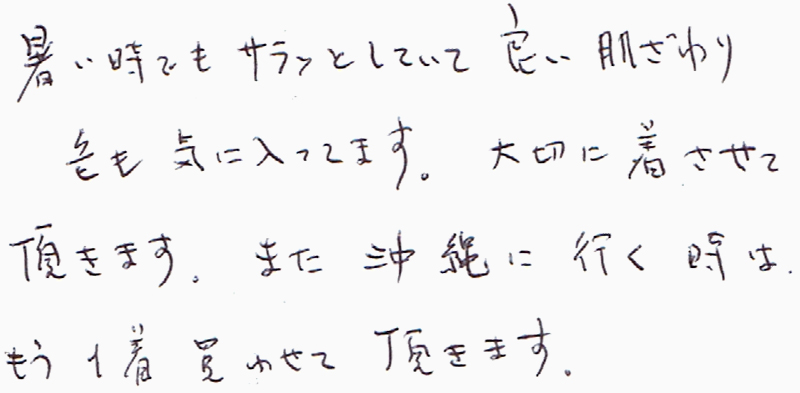 暑い時でもサラッとしていて良い肌ざわり
色も気に入ってます。大切に着させて
頂きます。また沖縄に行く時は.
もう1着買わせて頂きます。